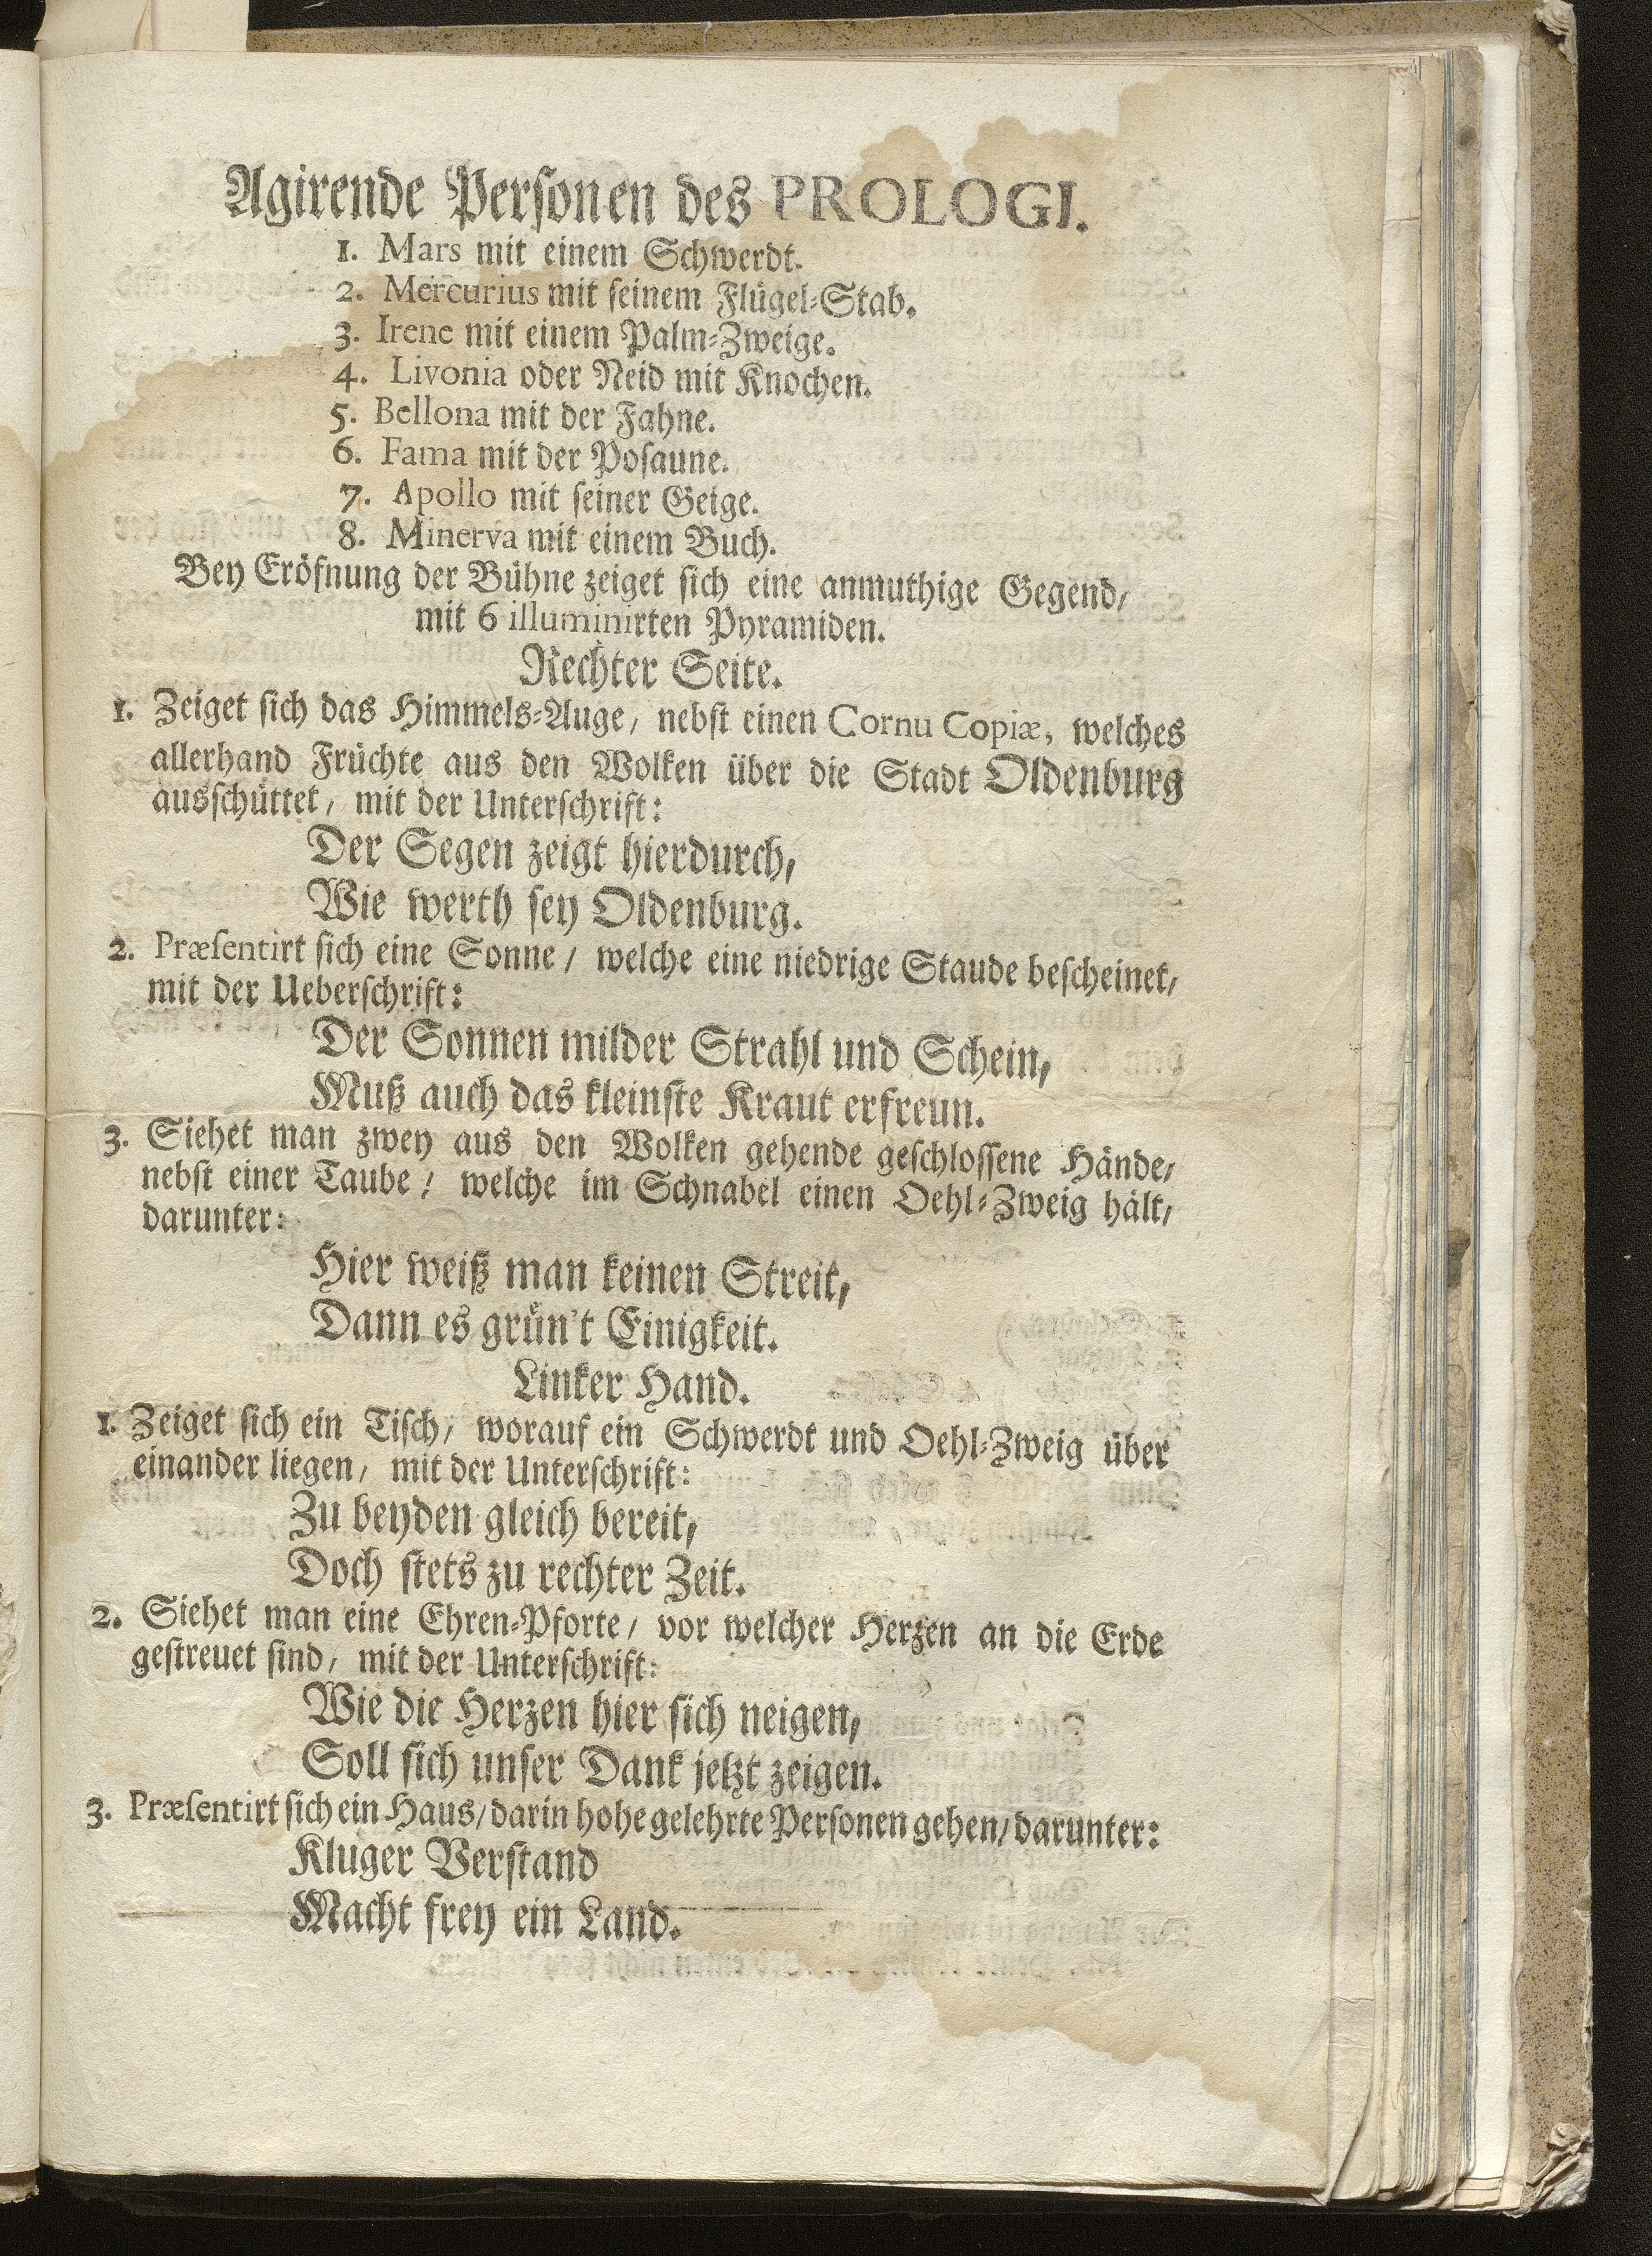 Agirende Personen des PROLOGI.
1. Mars mit einem Schwerdt.
2. Mercurius mit seinem Flügel-Stab.
3. Irene mit einem Palm-Zweige.
4. Livonia oder Neid mit Knochen.
5. Bellona mit der Fahne.
6. Fama mit der Posaune.
7. Apollo mit seiner Geige.
8. Minerva mit einem Buch.
Bey Eröfnung der Bühne zeiget sich eine anmuthige Gegend/
mit 6 illuminirten Pyramiden.
Rechter Seite.
1. Zeiget sich das Himmels-Auge/ nebst einen Cornu Copiæ, welches
allerhand Früchte aus den Wolken über die Stadt Oldenburg
ausschüttet/ mit der Unterschrift:
Der Segen zeigt hierdurch,
Wie werth sey Oldenburg.
2. Præsentirt sich eine Sonne/ welche eine niedrige Staude bescheinet/
mit der Ueberschrift:
Der Sonnen milder Strahl und Schein,
Muß auch das kleinste Kraut erfreun.
3. Siehet man zwey aus den Wolken gehende geschlossene Hände/
nebst einer Taube/ welche im Schnabel einen Oehl-Zweig hält/
darunter:
Hier weiß man keinen Streit,
Dann es grün't Einigkeit.
Linker Hand.
1. Zeiget sich ein Tisch/ worauf ein Schwerdt und Oehl-Zweig über
einander liegen/ mit der Unterschrift:
Zu beyden gleich bereit,
Doch stets zu rechter Zeit.
2. Siehet man eine Ehren-Pforte/ vor welcher Herzen an die Erde
gestreuet sind/ mit der Unterschrift:
Wie die Herzen hier sich neigen,
Soll sich unser Dank jetzt zeigen.
3. Præsentirt sich ein Haus/ darin hohe gelehrte Personen gehen/ darunter:
Kluger Verstand
Macht frey ein Land.